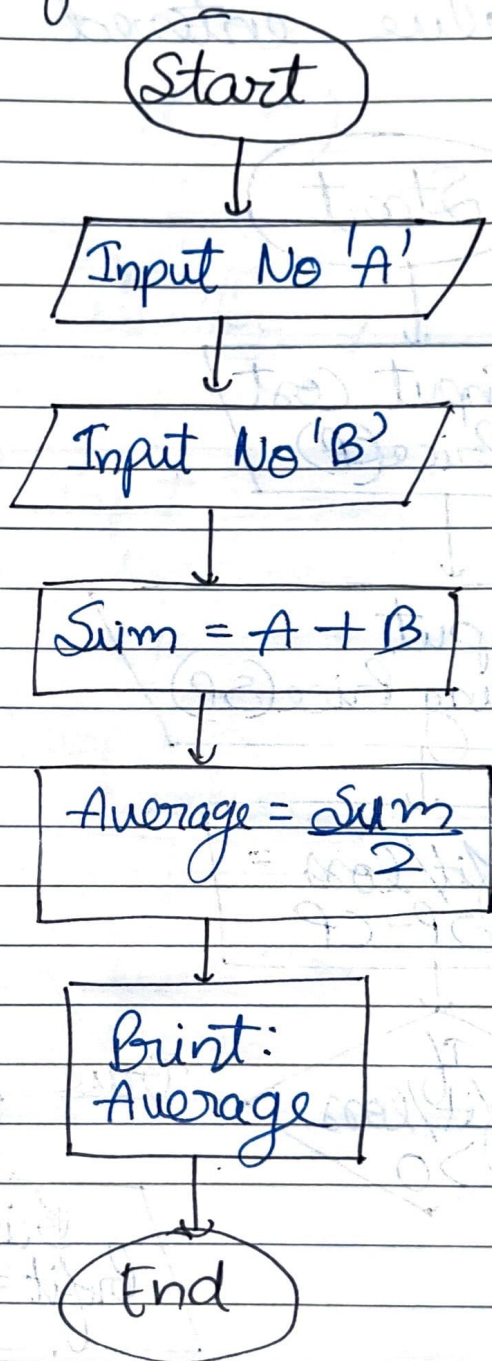 Start
Input No 'A'
Input No 'B'
Sum = A + B
Average = Sum
2
Print:
Average
End